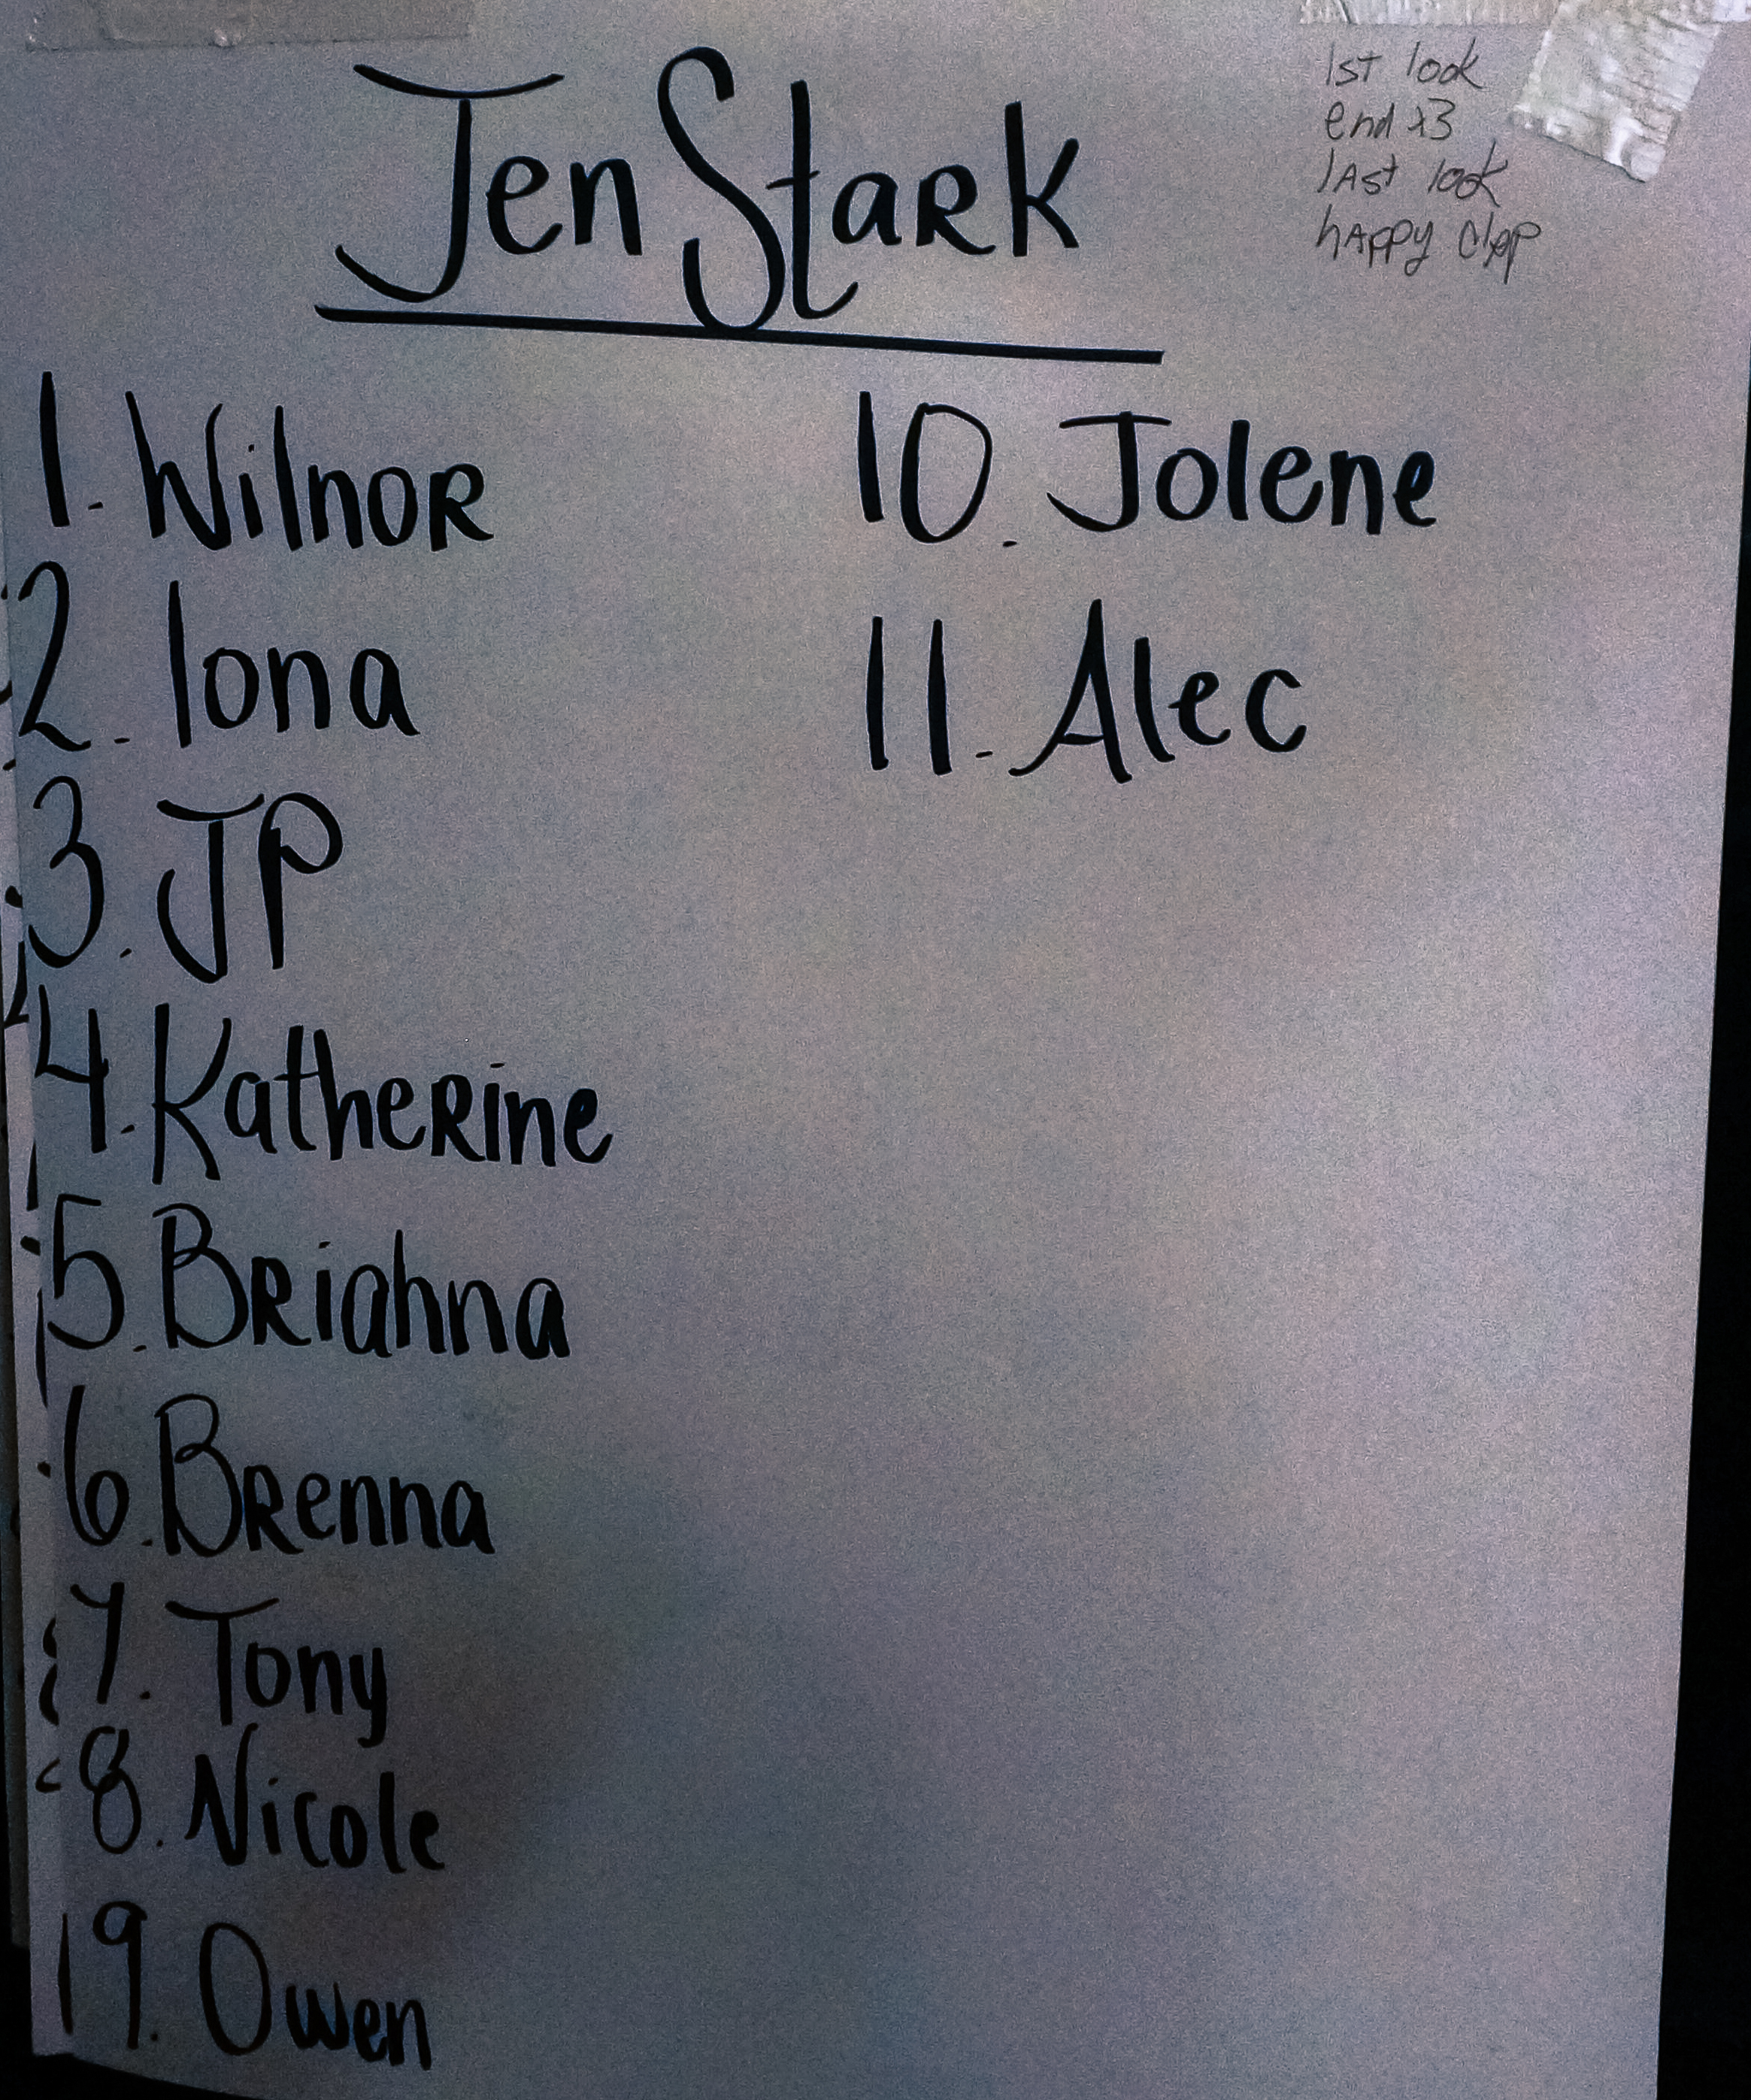 Jen Stark
1st look
end x3
last look
happy clap
1. Wilnor
2. Iona
3. JP
4. Katherine
5. Briahna
6. Brenna
7. Tony
8. Nicole
9. Owen
10. Jolene
11. Alec